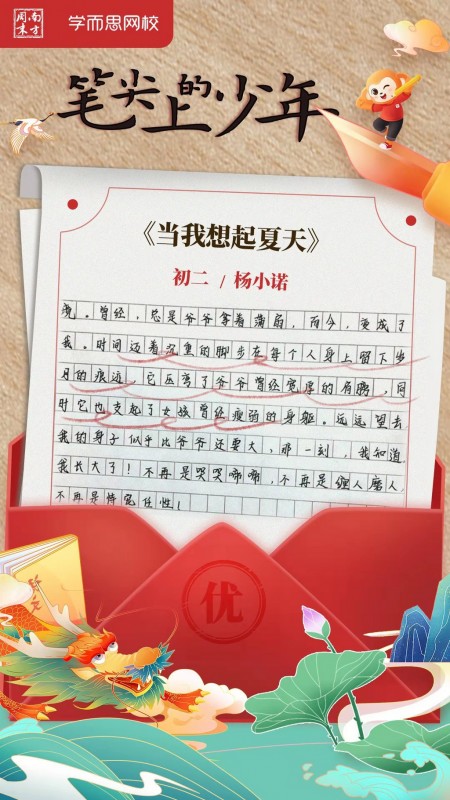 南方周末
学而思网校
笔尖上的少年
《当我想起夏天》
初二 / 杨小诺
凳。曾经，总是爷爷拿着蒲扇，而今，变成了
我。时间迈着沉重的脚步在每个人身上留下岁
月的痕迹，它压弯了爷爷曾经宽厚的肩膀，同
时它也支起了女孩曾经瘦弱的身躯。远远望去
我的身子似乎比爷爷还要大，那一刻，我知道
我长大了！不再是哭哭啼啼，不再是缠人磨人，
不再是恃宠任性！
优